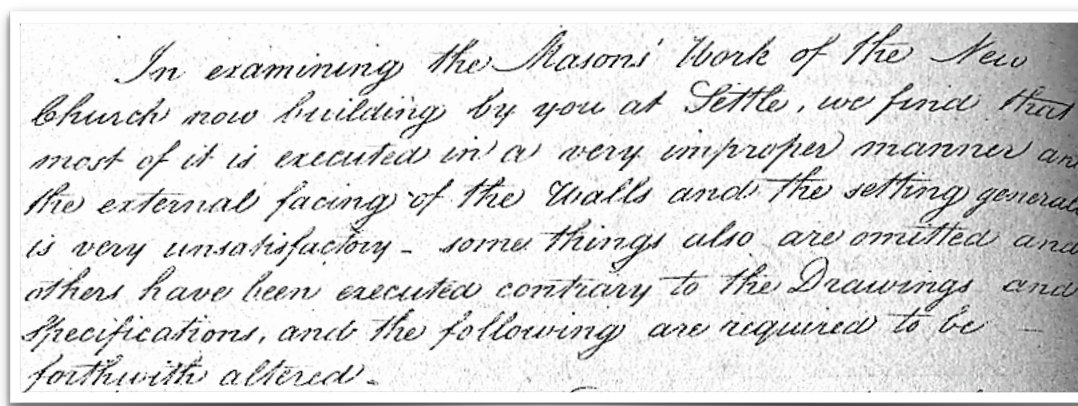 In examining the Masons' Work of the New
Church now building by you at Settle, we find that
most of it is executed in a very improper manner an
the external facing of the Walls and the setting general
is very unsatisfactory - some things also are omitted and
others have been executed contrary to the Drawings and
Specifications, and the following are required to be -
forthwith altered -